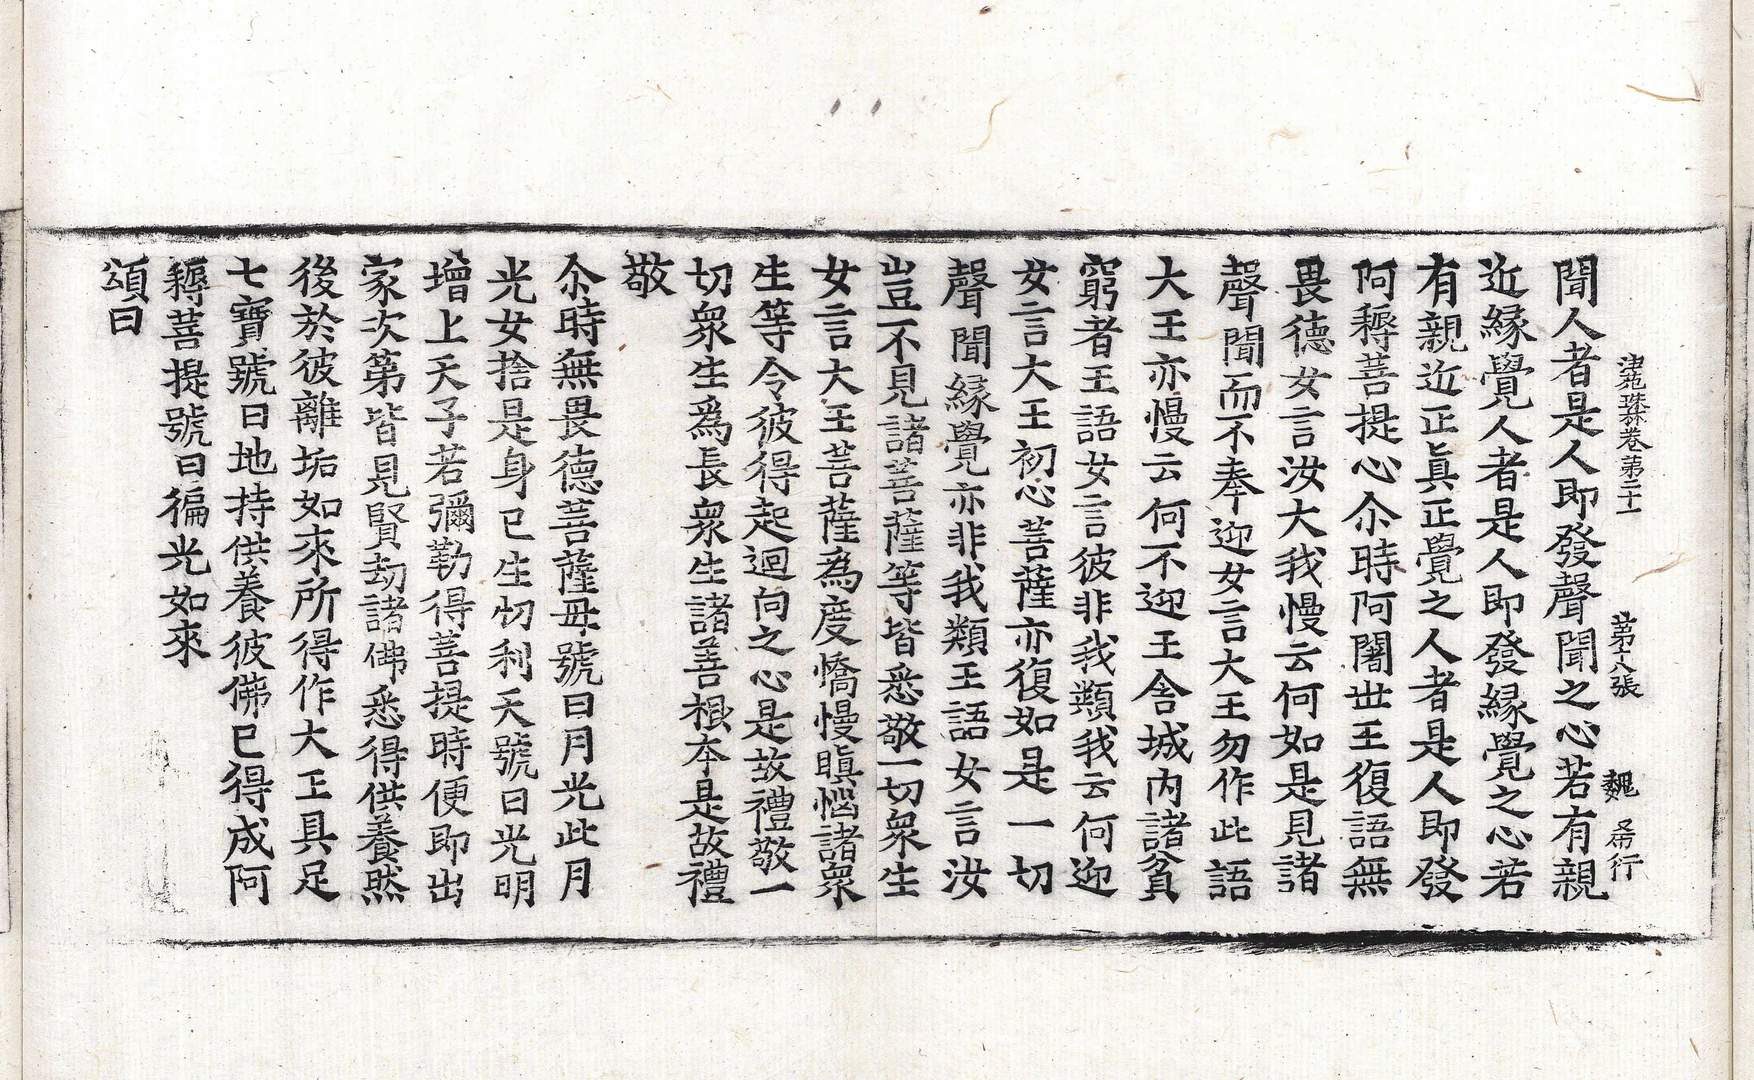 法苑珠林卷第二十一 第十八張 魏 행
聞人者是人即發聲聞之心若有親
近緣覺人者是人即發緣覺之心若
有親近正真正覺之人者是人即發
阿耨菩提心尒時阿闍世王復語無
畏德女言汝大我慢云何如是見諸
聲聞而不奉迎女言大王勿作此語
大王亦慢云何不迎王舍城內諸貧
窮者王語女言彼非我類我云何迎
女言大王初心菩薩亦復如是一切
聲聞緣覺亦非我類王語女言汝
豈不見諸菩薩等皆悉敬一切衆生
女言大王菩薩為度憍慢瞋惱諸衆
生等令彼得起迴向之心是故禮敬一
切衆生爲長衆生諸善根本是故禮
敬
尒時無畏德菩薩母號曰月光此月
光女捨是身已生忉利天號曰光明
增上天子若彌勒得菩提時便即出
家次第皆見賢劫諸佛悉得供養然
後於彼離垢如來所得作大王具足
七寶號曰地持供養彼佛已得成阿
耨菩提號曰徧光如來
頌曰